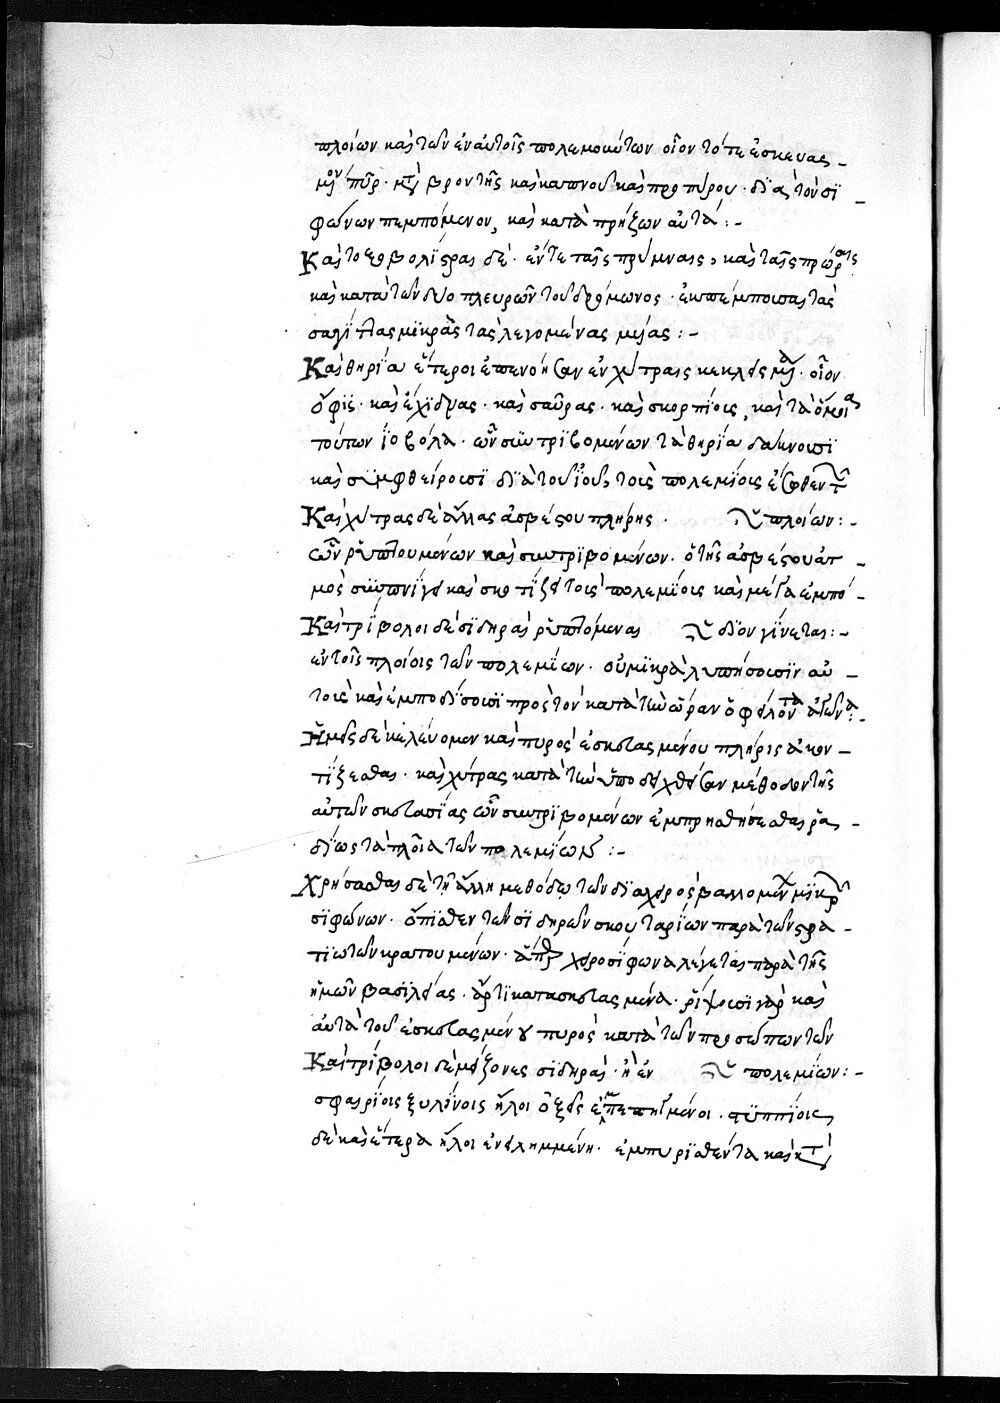 πλοίων καὶ τῶν ἐν αὐτοῖς πολεμούντων οἷον τό τε ἐσκευας
μένον πῦρ· μετὰ βροντῆς καὶ καπνοῦ καὶ προπύρου· διὰ τὸν σι
φώνων πεμπόμενον, καὶ κατὰ πρήζων αὐτά:-
Καὶ τοξοβολίστρας δὲ· ἔν τε ταῖς πρύμναις, καὶ ταῖς πρώραις
καὶ κατὰ τῶν δύο πλευρῶν τοῦ δρόμωνος· ἐκπέμπουσας τὰς
σαγίττας μϊκρὰς τὰς λεγομένας μυίας:-
Καὶ θηρία ἕτεροι ἐπενόησαν ἐν χύτραις κεκλεισμένα· οἷον
ὄφις· καὶ ἐχίδνας· καὶ σαύρας· καὶ σκορπίους, καὶ τὰ ὅμοια
τούτων ἰοβόλα· ὧν συντριβομένων τὰ θηρία δάκνουσι
καὶ συμφθείρουσι διὰ τοῦ ἰοῦ, τοὺς πολεμίους ἔσωθεν τῶν
Καὶ χύτρας δὲ ἄλλας ἀσβέστου πλήρης· πλοίων:-
ὧν ῥιπτουμένων καὶ συντριβομένων· ὁ τῆς ἀσβέστου ἀτ
μὸς συμπνίγει καὶ σκοτίζει τοὺς πολεμίους καὶ μέγα ἐμπό
Καὶ τρίβολοι δὲ σιδηραῖ ῥιπτόμεναι διον γίνεται:-
ἐν τοῖς πλοίοις τῶν πολεμίων· οὐ μικρὰ λυπήσουσιν αὐ
τοὺς καὶ ἐμποδίσουσι πρὸς τὸν κατὰ τὴν ὥραν ὀφείλοντα ἀγῶνα:-
Ἡμεῖς δὲ κελεύομεν καὶ πυρὸς ἐσκευασμένου πλήρις ἀκον
τίζεσθαι· καὶ χύτρας κατὰ τὴν ὑποδειχθεῖσαν μέθοδον τῆς
αὐτῶν σκευασίας ὧν συντριβομένων ἐμπρησθήσεσθαι ῥᾳ
δίως τὰ πλοῖα τῶν πολεμίων:-
Χρήσασθαι δὲ τῇ ἄλλη μεθόδω τῶν διὰ χειρὸς βαλλομένων μικρῶν
σιφώνων· ὄπισθεν τῶν σιδηρῶν σκουταρίων παρὰ τῶν στρα
τιωτῶν κρατουμένων· ἅπερ χειροσίφωνα λέγεται παρὰ τῆς
ἡμῶν βασιλείας· ἄρτι κατασκευασμένα· ῥίψουσι γὰρ καὶ
αὐτὰ τοῦ ἐσκευασμένου πυρὸς κατὰ τῶν προσώπων τῶν
Καὶ τρίβολοι δὲ μείζονες σιδηραῖ· ἢ ἐν πολεμίων:-
σφαιρίοις ξυλίνοις ἧλοι ὀξεῖς ἐμπεπηγμένοι· στυππίοις
δὲ καὶ ἑτέρα ἧλοι ἐνειλημμένη· ἐμπυρισθέντα καὶ κατὰ